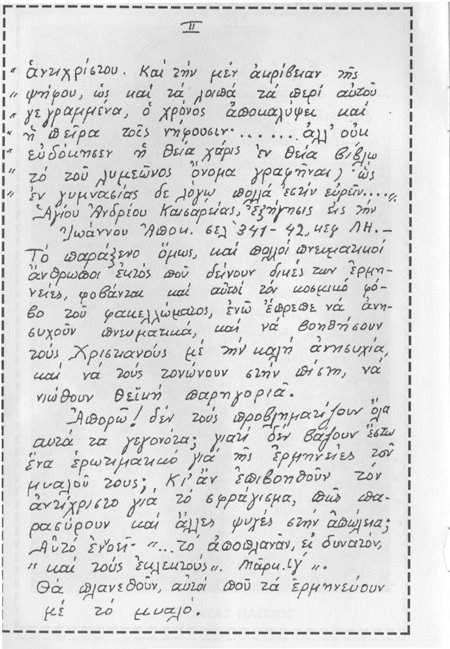 II
" ἀντιχρίστου. Καί τήν μέν ἀκρίβειαν τῆς
" ψήφου, ὡς καί τά λοιπά τά περί αὐτοῦ
" γεγραμμένα, ὁ χρόνος ἀποκαλύψει καί
" ἡ πεῖρα τοῖς νήφουσιν........ἀλλ' οὐκ
" εὐδόκησεν ἡ θεία χάρις ἐν θεία βίβλῳ
" τό τοῦ λυμεῶνος ὄνομα γραφῆναι, ὡς
" ἐν γυμνασίας δέ λόγῳ πολλά ἐστίν εὑρεῖν....."
Ἁγίου Ἀνδρέου Καισαρείας, Ἐξήγησις εἰς τήν
Ἰωάννου Ἀποκ. σελ 341-42, κεφ ΛΗ.-
Τό παράξενο ὅμως, καί πολλοί πνευματικοί
ἄνθρωποι ἐκτός πού δείνουν δικές των ἑρμη-
νείες, φοβάνται καί αὐτοί τόν κοσμικό φό-
βο τοῦ φακελλώματος, ἐνῶ ἔπρεπε νά ἀνη-
συχοῦν πνευματικά, καί νά βοηθήσουν
τούς Χριστιανούς μέ τήν καλή ἀνησυχία,
καί νά τούς τονώνουν στήν πίστη, νά
νιώθουν θεϊκή παρηγοριά.
Ἀπορῶ! δέν τούς προβληματίζουν ὅλα
αυτά τα γεγονότα; γιατί δέν βάζουν ἔστω
ἕνα ἐρωτιματικό γιά τῆς ἑρμηνείες τοῦ
μυαλοῦ τους; Κι' ἄν ἐπιβοηθοῦν τόν
ἀντίχριστο γιά τό σφράγισμα, πῶς πα-
ρασύρουν καί ἄλλες ψυχές στήν ἀπώλεια;
Αὐτό ἐνοεῖ- "...τό ἀποπλανᾶν, εἰ δυνατόν,
" καί τούς ἐκλεκτούς". Μάρκ. ιγ' ".
Θά πλανεθοῦν, αὐτοί πού τά ἑρμηνεύουν
μέ τό μυαλό.